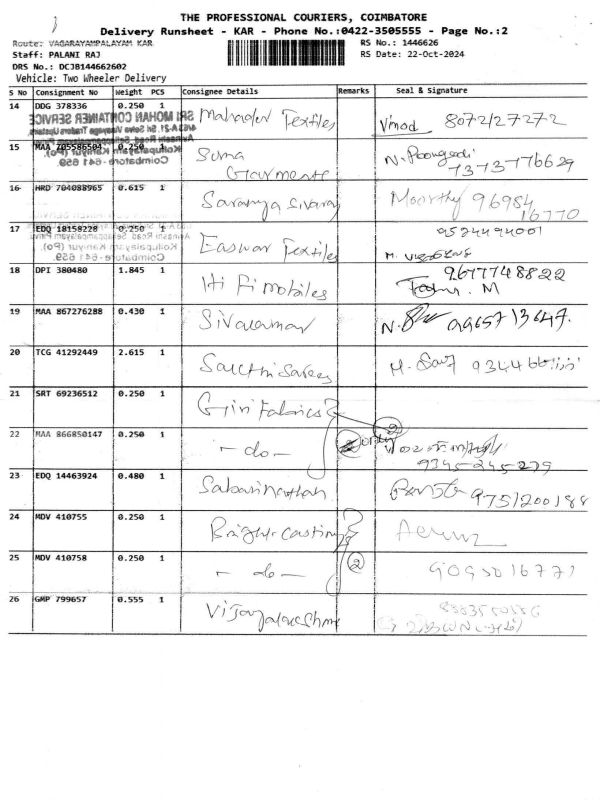 THE PROFESSIONAL COURIERS, COIMBATORE
Delivery Runsheet - KAR - Phone No.:0422-3505555 - Page No.:2
Route: VAGARAYAMPALAYAM KAR
RS No.: 1446626
Staff: PALANI RAJ
RS Date: 22-Oct-2024
DRS No.: DCJB144662602
Vehicle: Two Wheeler Delivery
S No Consignment No Weight PCS Consignee Details Remarks Seal & Signature
14 DDG 378336 0.250 1 Mahadev Textiles Vmod 8072127272
SRI MOHAN CONTAINER SERVICE
15 MAA 705586504 0.250 1 Suma Garments N. Poongodi 7373776629
Coimbatore - 641 659.
16 HRD 704088965 0.615 1 Saranya Sivaraj Moorthy 96984 16770
17 EDQ 18158228 0.250 1 Easwar Textiles 9524494001
Kolupalayam Kaniyur (Po).
Coimbatore - 641 659.
18 DPI 380480 1.845 1 Hi Fi mobiles 9677748822
19 MAA 867276288 0.430 1 Sivaraman
20 TCG 41292449 2.615 1 Sakthi Sarees
21 SRT 69236512 0.250 1 Giri Fabrics
22 MAA 866850147 0.250 1 - do - 2 9345245279
23 EDQ 14463924 0.480 1 Sabarinathan 9751200188
24 MDV 410755 0.250 1 Bright casting
25 MDV 410758 0.250 1 - do - 2
26 GMP 799657 0.555 1 Vijayalakshmi